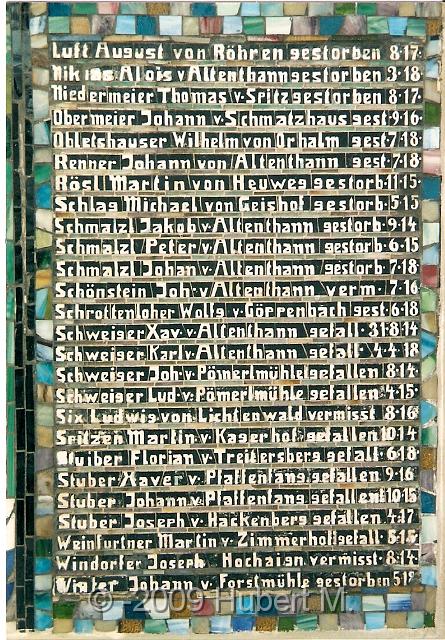 Luft August von Röhren gestorben 8·17·
Niklas Alois v Altenthann gestorben 3·18
Niedermeier Thomas v·Spitz gestorben 8·17
Obermeier Johann v·Schmatzhaus gest·9·16
Obletshauser Wilhelm von Orhalm gest·7·18
Renner Johann von Altenthann gest·7·18
Rösl Martin von Heuweg gestorb·11·15·
Schlag Michael von Geishof gestorb·5·15
Schmalzl Jakob v·Altenthann gestorb·9·14
Schmalzl Peter v·Altenthann gestorb·6·15
Schmalzl Johan v·Altenthann gestorb·7·18
Schönstein Joh·v·Altenthann verm·7·16
Schrottenloher Wolfg v·Göppenbach gest·6·18
Schweiger Xav·v·Altenthann gefall·31·8·14
Schweiger Karl v·Altenthann gefall·4·4·18
Schweiger Joh·v·Pömerlmühle gefallen 8·14
Schweiger Lud·v·Pömerlmühle gefallen 4·15·
Six Ludwig von Lichtenwald vermisst 8·16
Spitzen Martin v·Kagerhof gefallen 10·14
Stuiber Florian v·Treitersberg gefall·6·18
Stuber Xaver v·Pfaffenfang gefallen 9·16
Stuber Johann v·Pfaffenfang gefallen 10·15
Stuber Joseph v·Hackenberg gefallen 4·17
Weinfurtner Martin v·Zimmerhof gefall·5·15
Windorfer Joseph Hochaign vermisst·8·14
Johann v·Forstmühle gestorben 5·18
© 2009 Hubert M.